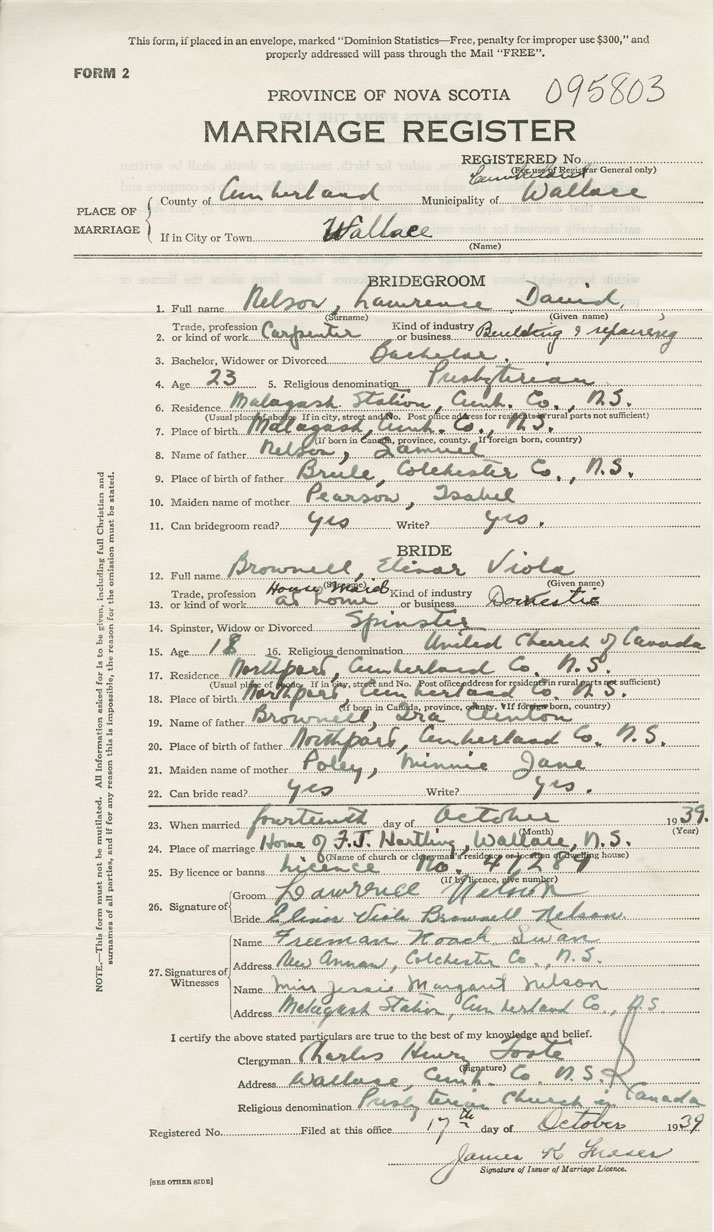 This form, if placed in an envelope, marked "Dominion Statistics—Free, penalty for improper use $300," and
properly addressed will pass through the Mail "FREE".
FORM 2
PROVINCE OF NOVA SCOTIA 095803
MARRIAGE REGISTER
REGISTERED No.
(For use of Registrar General only)
Cumberland
PLACE OF MARRIAGE
County of Cumberland Municipality of Wallace
If in City or Town Wallace
(Name)
BRIDEGROOM
1. Full name Nelson, Lawrence David,
(Surname) (Given name)
2. Trade, profession or kind of work Carpenter Kind of industry or business Building & repairing
3. Bachelor, Widower or Divorced Bachelor.
4. Age 23 5. Religious denomination Presbyterian
6. Residence Malagash Station, Cumb. Co., N.S.
(Usual place of abode. If in city, street and No. Post office address for residents in rural parts not sufficient)
7. Place of birth Malagash, Cumb. Co., N.S.
(If born in Canada, province, county. If foreign born, country)
8. Name of father Nelson, Samuel
9. Place of birth of father Brule, Colchester Co., N.S.
10. Maiden name of mother Pearson, Isabel
11. Can bridegroom read? yes Write? yes.
BRIDE
12. Full name Brownell, Elinor Viola
(Surname) (Given name)
13. Trade, profession or kind of work House Maid at home Kind of industry or business Domestic
14. Spinster, Widow or Divorced Spinster
15. Age 18 16. Religious denomination United Church of Canada
17. Residence Northport, Cumberland Co. N.S.
(Usual place of abode. If in city, street and No. Post office address for residents in rural parts not sufficient)
18. Place of birth Northport, Cumberland Co. N.S.
(If born in Canada, province, county. If foreign born, country)
19. Name of father Brownell, Ira Clinton
20. Place of birth of father Northport, Cumberland Co. N.S.
21. Maiden name of mother Poley, Minnie Jane
22. Can bride read? yes Write? yes.
23. When married fourteenth day of October 1939.
(Month) (Year)
24. Place of marriage Home of F.J. Hartling, Wallace, N.S.
(Name of church or clergyman's residence or location of dwelling house)
25. By licence or banns Licence No. 47284
(If by licence, give number)
26. Signature of
Groom Lawrence Nelson
Bride Elinor Viola Brownell Nelson
27. Signatures of Witnesses
Name Freeman Roach Swan
Address New Annan, Colchester Co., N.S.
Name Miss Jessie Margaret Nelson
Address Malagash Station, Cumberland Co., N.S.
I certify the above stated particulars are true to the best of my knowledge and belief.
Clergyman Charles Henry Foote
(Signature)
Address Wallace, Cumb. Co. N.S.
Religious denomination Presbyterian Church in Canada
Registered No. Filed at this office 17th day of October 1939
James K Fraser
Signature of Issuer of Marriage Licence.
[SEE OTHER SIDE]
NOTE.—This form must not be mutilated. All information asked for is to be given, including full Christian and
surnames of all parties, and if for any reason this is impossible, the reason for the omission must be stated.